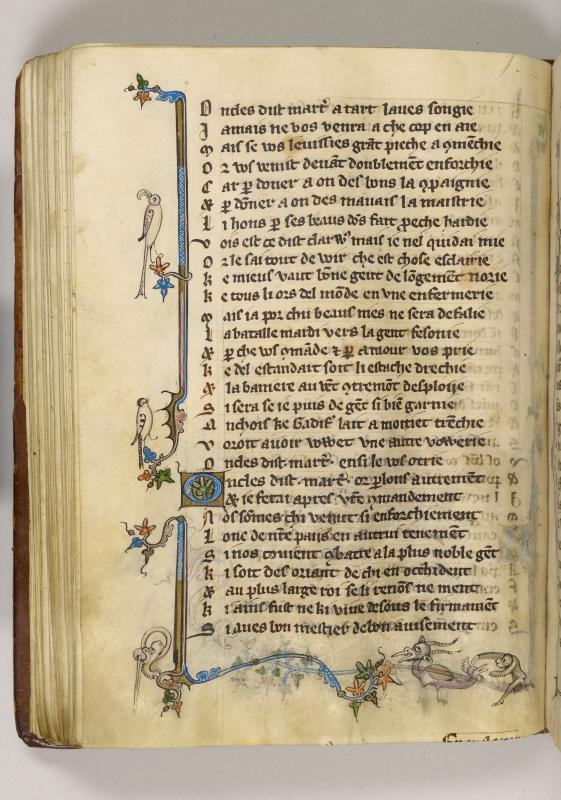 O ncles dist marc̄ a tart laues songie
J amais ne vos venra a che cop en aie
M ais se vos leuissies grāt pieche a 9menchie
O r vꝯ venist deuāt doublemēt enforchie
C ar ꝑ doner a on des bons la 9paignie
& ꝑ dōner a on des mauais la maistrie
L i hons ꝑ ses beaus dōs fait proeche hardie
V ois est ce dist clarꝯ mais ie nel quidai mie
O r le sai tout de voir che est chose esclairie
K e mieus vaut bōne gent de lōgemēt norie
K e tous li ors del mōde en vne enfermerie
M ais ia por chu beaus nies ne sera defalie
L a bataille mardi vers la gent fesonie
& ꝑ che vꝯ 9māde & ꝑ amour vos prie
K e del estandart soit li estache drechie
& la baniere au vēt 9tremōt desploije
S i sera se ie puis de gēt si biē garnie
A nchois ke Gadifꝰ lait a moitiet trēchie
V oroit auoir vowet vne autre vowerie
O ncles dist marc̄ ensi le vꝯ otrie
O ncles dist marc̄ or ꝑlons autremēt
& ie ferai apres vr̄e 9mandement
N os sōmes chi venut si enforchiement
L onc de nr̄e pais en autrui tenemēt
S i nos 9uient 9batre a la plus noble gēt
K i soit des oriant de chi en occhident
& au plus large roi se li renōs ne ment
K i ains fust ne ki viue desous le firmamēt
S i aues bon mestier de bon auisement